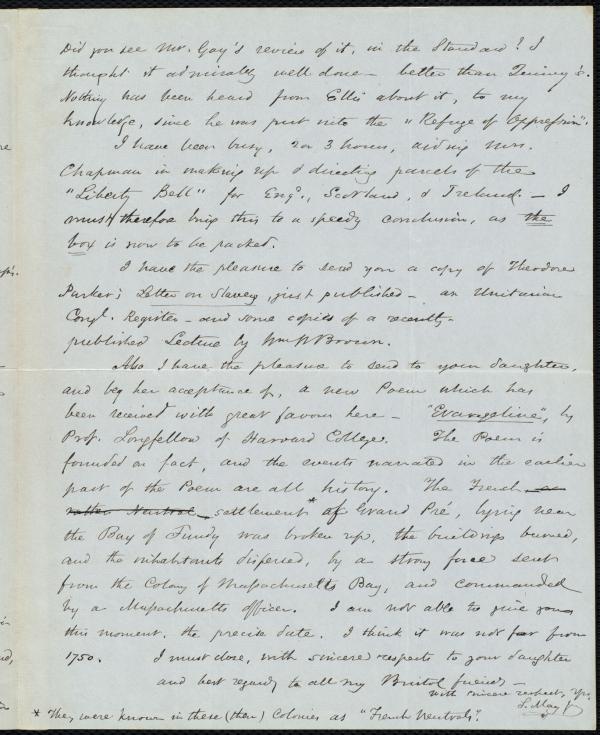 Did you see Mr. Gay's review of it, in the Standard? I
thought it admirably well done – better than Quincy's.
Nothing has been heard from Ellis about it, to my
knowledge, since he was put into the "Refuge of Oppression".
I have been busy, 2 or 3 hours, aiding Mrs.
Chapman in making up & directing parcels of the
"Liberty Bell" for Engd., Scotland, & Ireland. – I
must therefore bring this to a speedy conclusion, as the
box is now to be packed.
I have the pleasure to send you a copy of Theodore
Parker's Letter on Slavery, just published – an Unitarian
Congl. Register – and some copies of a recently-
published Lecture by Wm W Brown.
Also I have the pleasure to send to your daughter,
and beg her acceptance of, a new Poem which has
been received with great favour here – "Evangeline", by
Prof. Longfellow of Harvard College. The Poem is
founded on fact, and the events narrated in the earlier
part of the Poem are all history. The French or
rather Neutral settlement * of Grand Pré, lying near
the Bay of Fundy was broken up, the buildings burned,
and the inhabitants dispersed, by a strong force sent
from the Colony of Massachusetts Bay, and commanded
by a Massachusetts officer. I am not able to give you
this moment, the precise date. I think it was not far from
1750. I must close, with sincere respects to your daughter
and best regards to all my Bristol friends –
with sincere respect, Yrs.
S. May Jr
* They were known in these (then) Colonies as "French Neutrals".